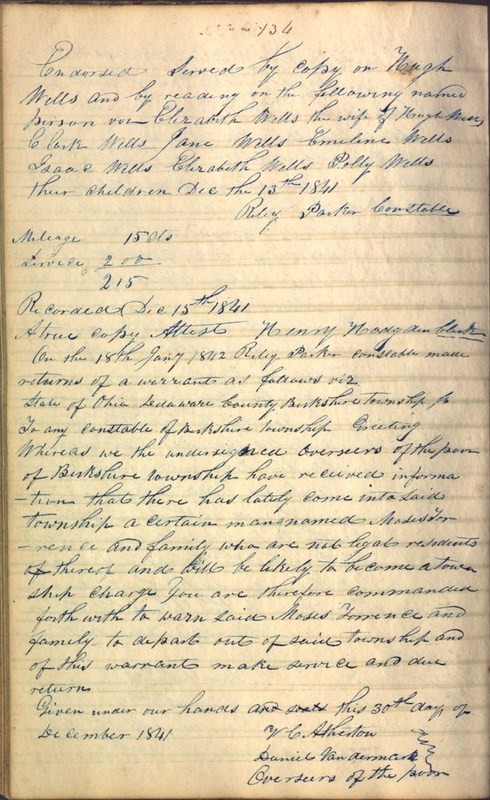 134
Endorsed Served by copy on Hugh
Wells and by reading on the following named
person viz Elizabeth Wells the wife of Hugh Wells
Clark Wells Jane Wells Emeline Wells
Isaac Wells Elizabeth Wells Polly Wells
their children Dec the 13th 1841
Riley Parker Constable
Mileage 15 cts
Service 2 00
215
Recorded Dec 15th 1841
A true copy Attest Henry Hodgden Clerk
On the 18th Jany 1842 Riley Parker constable made
returns of a warrant as follows viz
State of Ohio Delaware County Berkshire township ss
To any constable of Berkshire township Greeting
Whereas we the undersigned Overseers of the poor
of Berkshire township have received informa
-tion that there has lately come into said
township a certain man named Moses Tor
-rence and family who are not legal residents
of thereof and will be likely to become a town
ship charge You are therefore commanded
forth with to warn said Moses Torrence and
family to depart out of said township and
of this warrant make service and due
return
Given under our hands and seals this 30th day of
December 1841
W C Atherton
Daniel Vandermark
Overseers of the poor